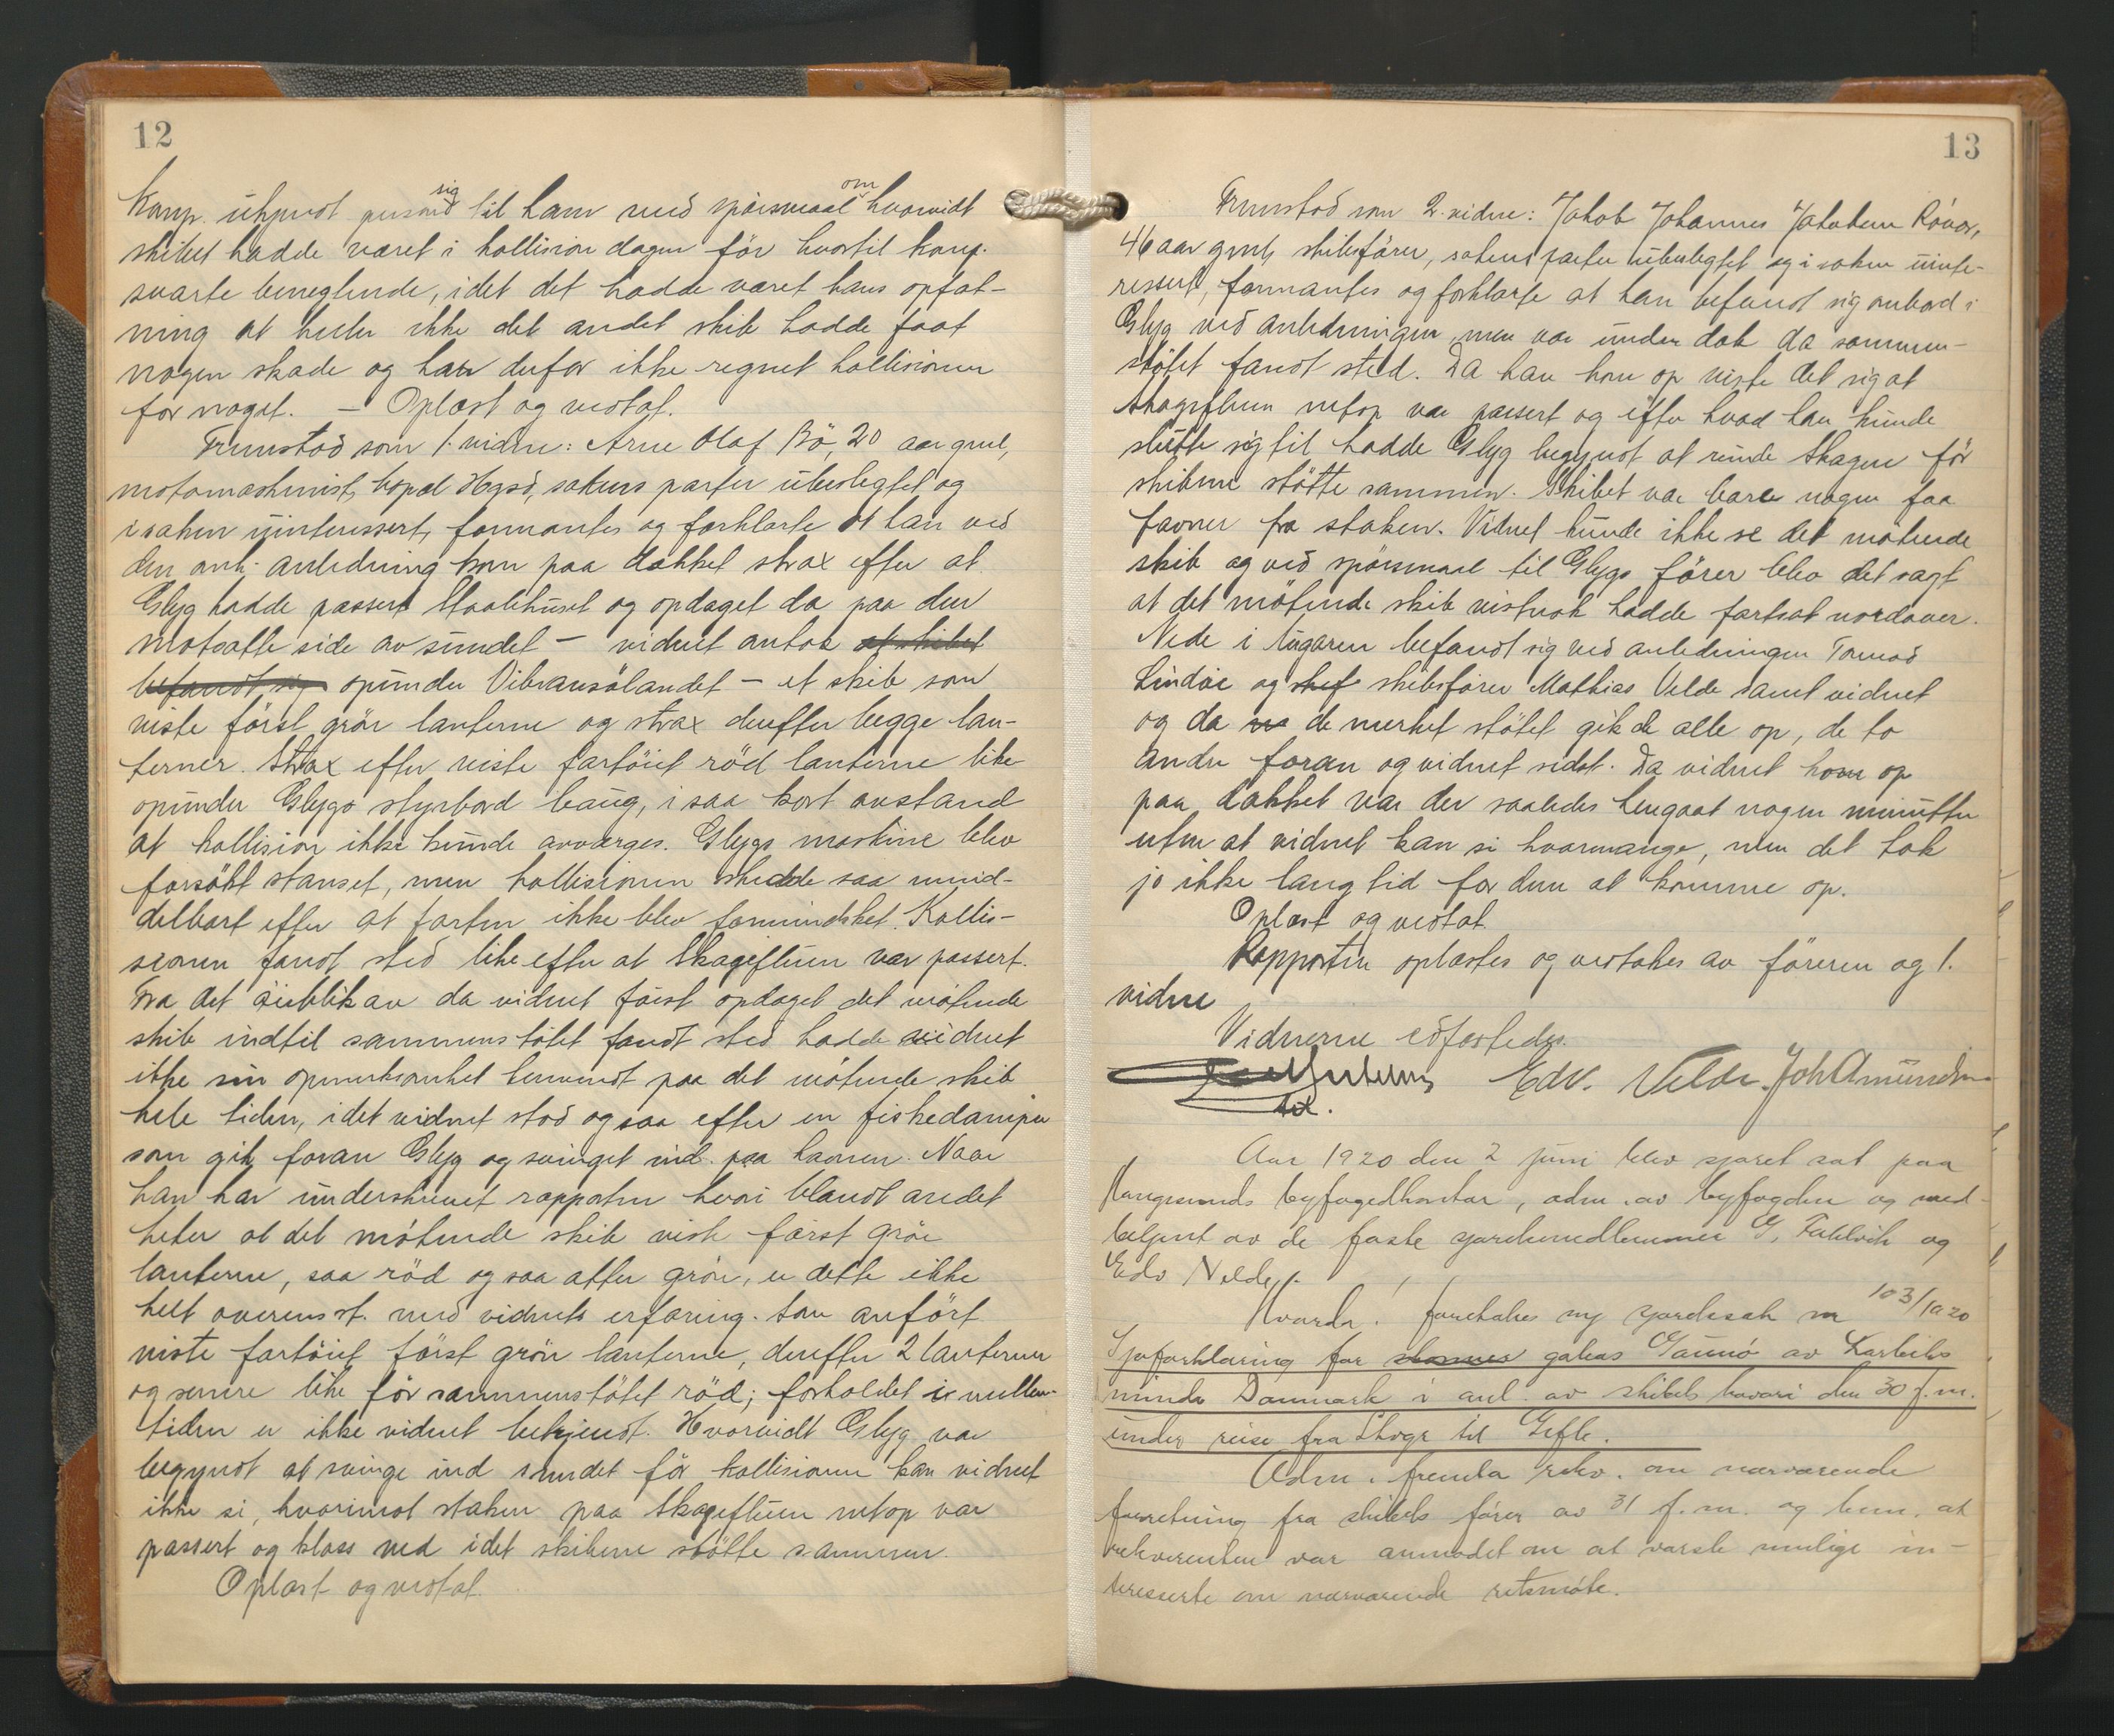 12
komp. uhpvst personl sig til ham med spörsmaal om hvorvidt
skibet hadde været i kollision dagen för hvortil komp.
svarte benegtende, idet det hadde været hans opfat-
ning at heller ikke det andet skib hadde faat
nogen skade og han derfor ikke regnet kollisionen
for noget. — Oplæst og vedtat.
Fremstod som 1. vidne: Arne Olaf Bö, 20 aar gml,
motormaskinist, bopæl, sakens parter ubeslegtet og
i saken uinteressert, formantes og forklarte at han ved
den omh. anledning kom paa dækket strax efter at
Glyg hadde passert Staalehuset og opdaget da paa den
motsatte side av sundet — vidnet antok at skibet
befandt sig opunder Vibransölandet — et skib som
viste först grön lanterne og strax derefter begge lan-
terner. Strax efter viste fartöiet röd lanterne like
opunder Glygs styrbord baug, i saa kort avstand
at kollision ikke kunde avværges. Glygs maskine blev
forsökt stanset, men kollisionen skedde saa umid-
delbart efter at farten ikke blev formindsket. Kollis-
sionen fandt sted like efter at Skageflun var passert.
Fra det öieblik av da vidnet först opdaget det mötende
skib indtil sammenstötet fandt sted hadde vidnet
ikke sin opmerksomhet henvendt paa det mötende skib
hele tiden, idet vidnet stod og saa efter en fiskedamper
som gik foran Glyg og svinget ind paa havnen. Naar
han har underskrevet rapporten hvori blandt andet
heter at det mötende skib viste först grön
lanterne, saa röd og saa atter grön, er dette ikke
helt overensst. med vidnets erfaring. Som anfört
viste fartöiet först grön lanterne, derefter 2 lanterner
og senere like för sammenstötet röd; forholdet i mellem-
tiden er ikke vidnet bekjendt. Hvorvidt Glyg var
begyndt at svinge ind sundet för kollisionen kan vidnet
ikke si, hvorimot staken paa Skageflun netop var
passert og klass ved idet skibene stötte sammen.
Oplæst og vedtat.
13
Fremstod som 2. vidne: Jakob Johannes Jakobsen Rövær,
46 aar gml, skibsförer, sakens parter ubeslegtet og i saken uinte-
ressert, formantes og forklarte at han befandt sig ombord i
Glyg ved anledningen, men var under dæk da sammen-
stötet fandt sted. Da han kom op viste det sig at
Skageflun netop var passert og efter hvad han kunde
slutte sig til hadde Glyg begyndt at runde Skagen för
skibene stötte sammen. Skibet var bare nogen faa
favner fra staken. Vidnet kunde ikke se det mötende
skib og ved spörsmaal til Glygs förer blev det sagt
at det mötende skib vistnok hadde fartsat nordover.
Nede i lugaren befandt sig ved anledningen Tormod
Lindöe og skef skibsförer Mathias Velde samt vidnet
og da de merket stötet gik de alle op, de to
andre foran og vidnet sidst. Da vidnet kom op
paa dækket var der saaledes hengaat nogen minutter
uten at vidnet kan si hvormange, men det tok
jo ikke lang tid for dem at komme op.
Oplæst og vedtat.
Rapporten oplæstes og vedtokes av föreren og 1.
vidne
Vidnerne edfæstedes.
Edv. Velde. Joh Amundsen
Aar 1920 den 2 juni blev sjöret sat paa
Haugesunds byfogedkontor, adm. av byfogden og med-
betjent av de faste sjöretsmedlemmer G. Fuklvik og
Edv Velde.
Hvorda! foretokes ny sjöretssak nr 103/1920
Sjöforklaring for galeas Taunö av Karlebs
minde Danmark i anl. av skibets havari den 30 f.m.
under reise fra Skoge til Gefle.
Adm. fremla rekv. om nærværende
forretning fra skibets förer av 31 f.m. og bem. at
rekvirenten var anmodet om at varsle mulige in-
teresserte om nærværende retsmöte.